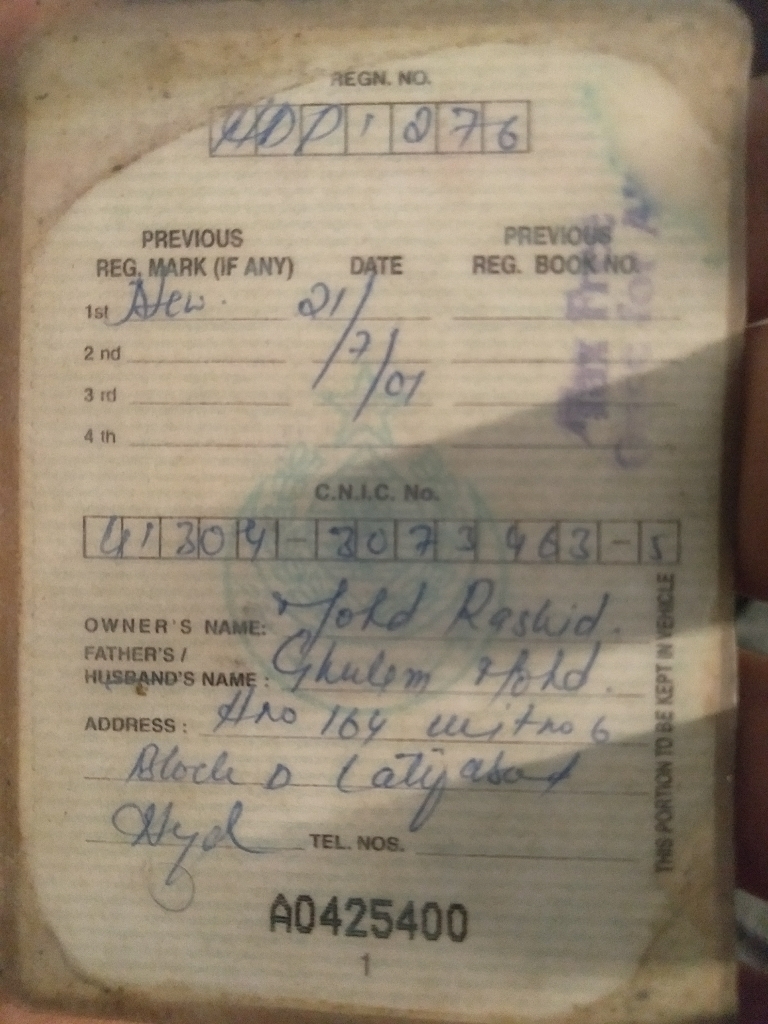 REGN. NO.
HDP 1276
PREVIOUS REG. MARK (IF ANY) DATE PREVIOUS REG. BOOK NO.
1st New. 21/7/01
2 nd
3 rd
4 th
C.N.I.C. No.
41304-3073463-5
OWNER'S NAME: Mohd Rashid.
FATHER'S /
HUSBAND'S NAME : Ghulam Mohd.
ADDRESS : Hno 164 unit no 6
Block D Latifabad
Hyd TEL. NOS.
A0425400
1
THIS PORTION TO BE KEPT IN VEHICLE
Tax